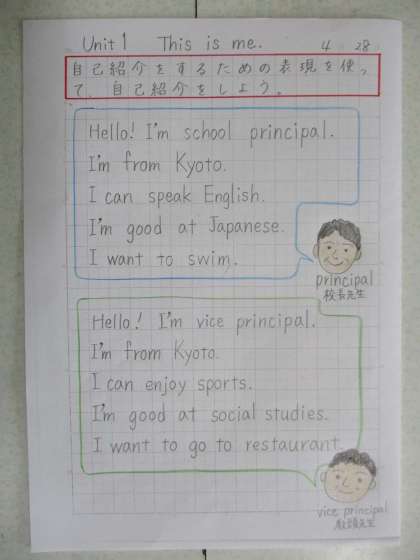 Unit 1 This is me. 4 28
自己紹介をするための表現を使っ
て、自己紹介をしよう。
Hello! I'm school principal.
I'm from Kyoto.
I can speak English.
I'm good at Japanese.
I want to swim.
principal
校長先生
Hello! I'm vice principal.
I'm from Kyoto.
I can enjoy sports.
I'm good at social studies.
I want to go to restaurant.
vice principal
教頭先生